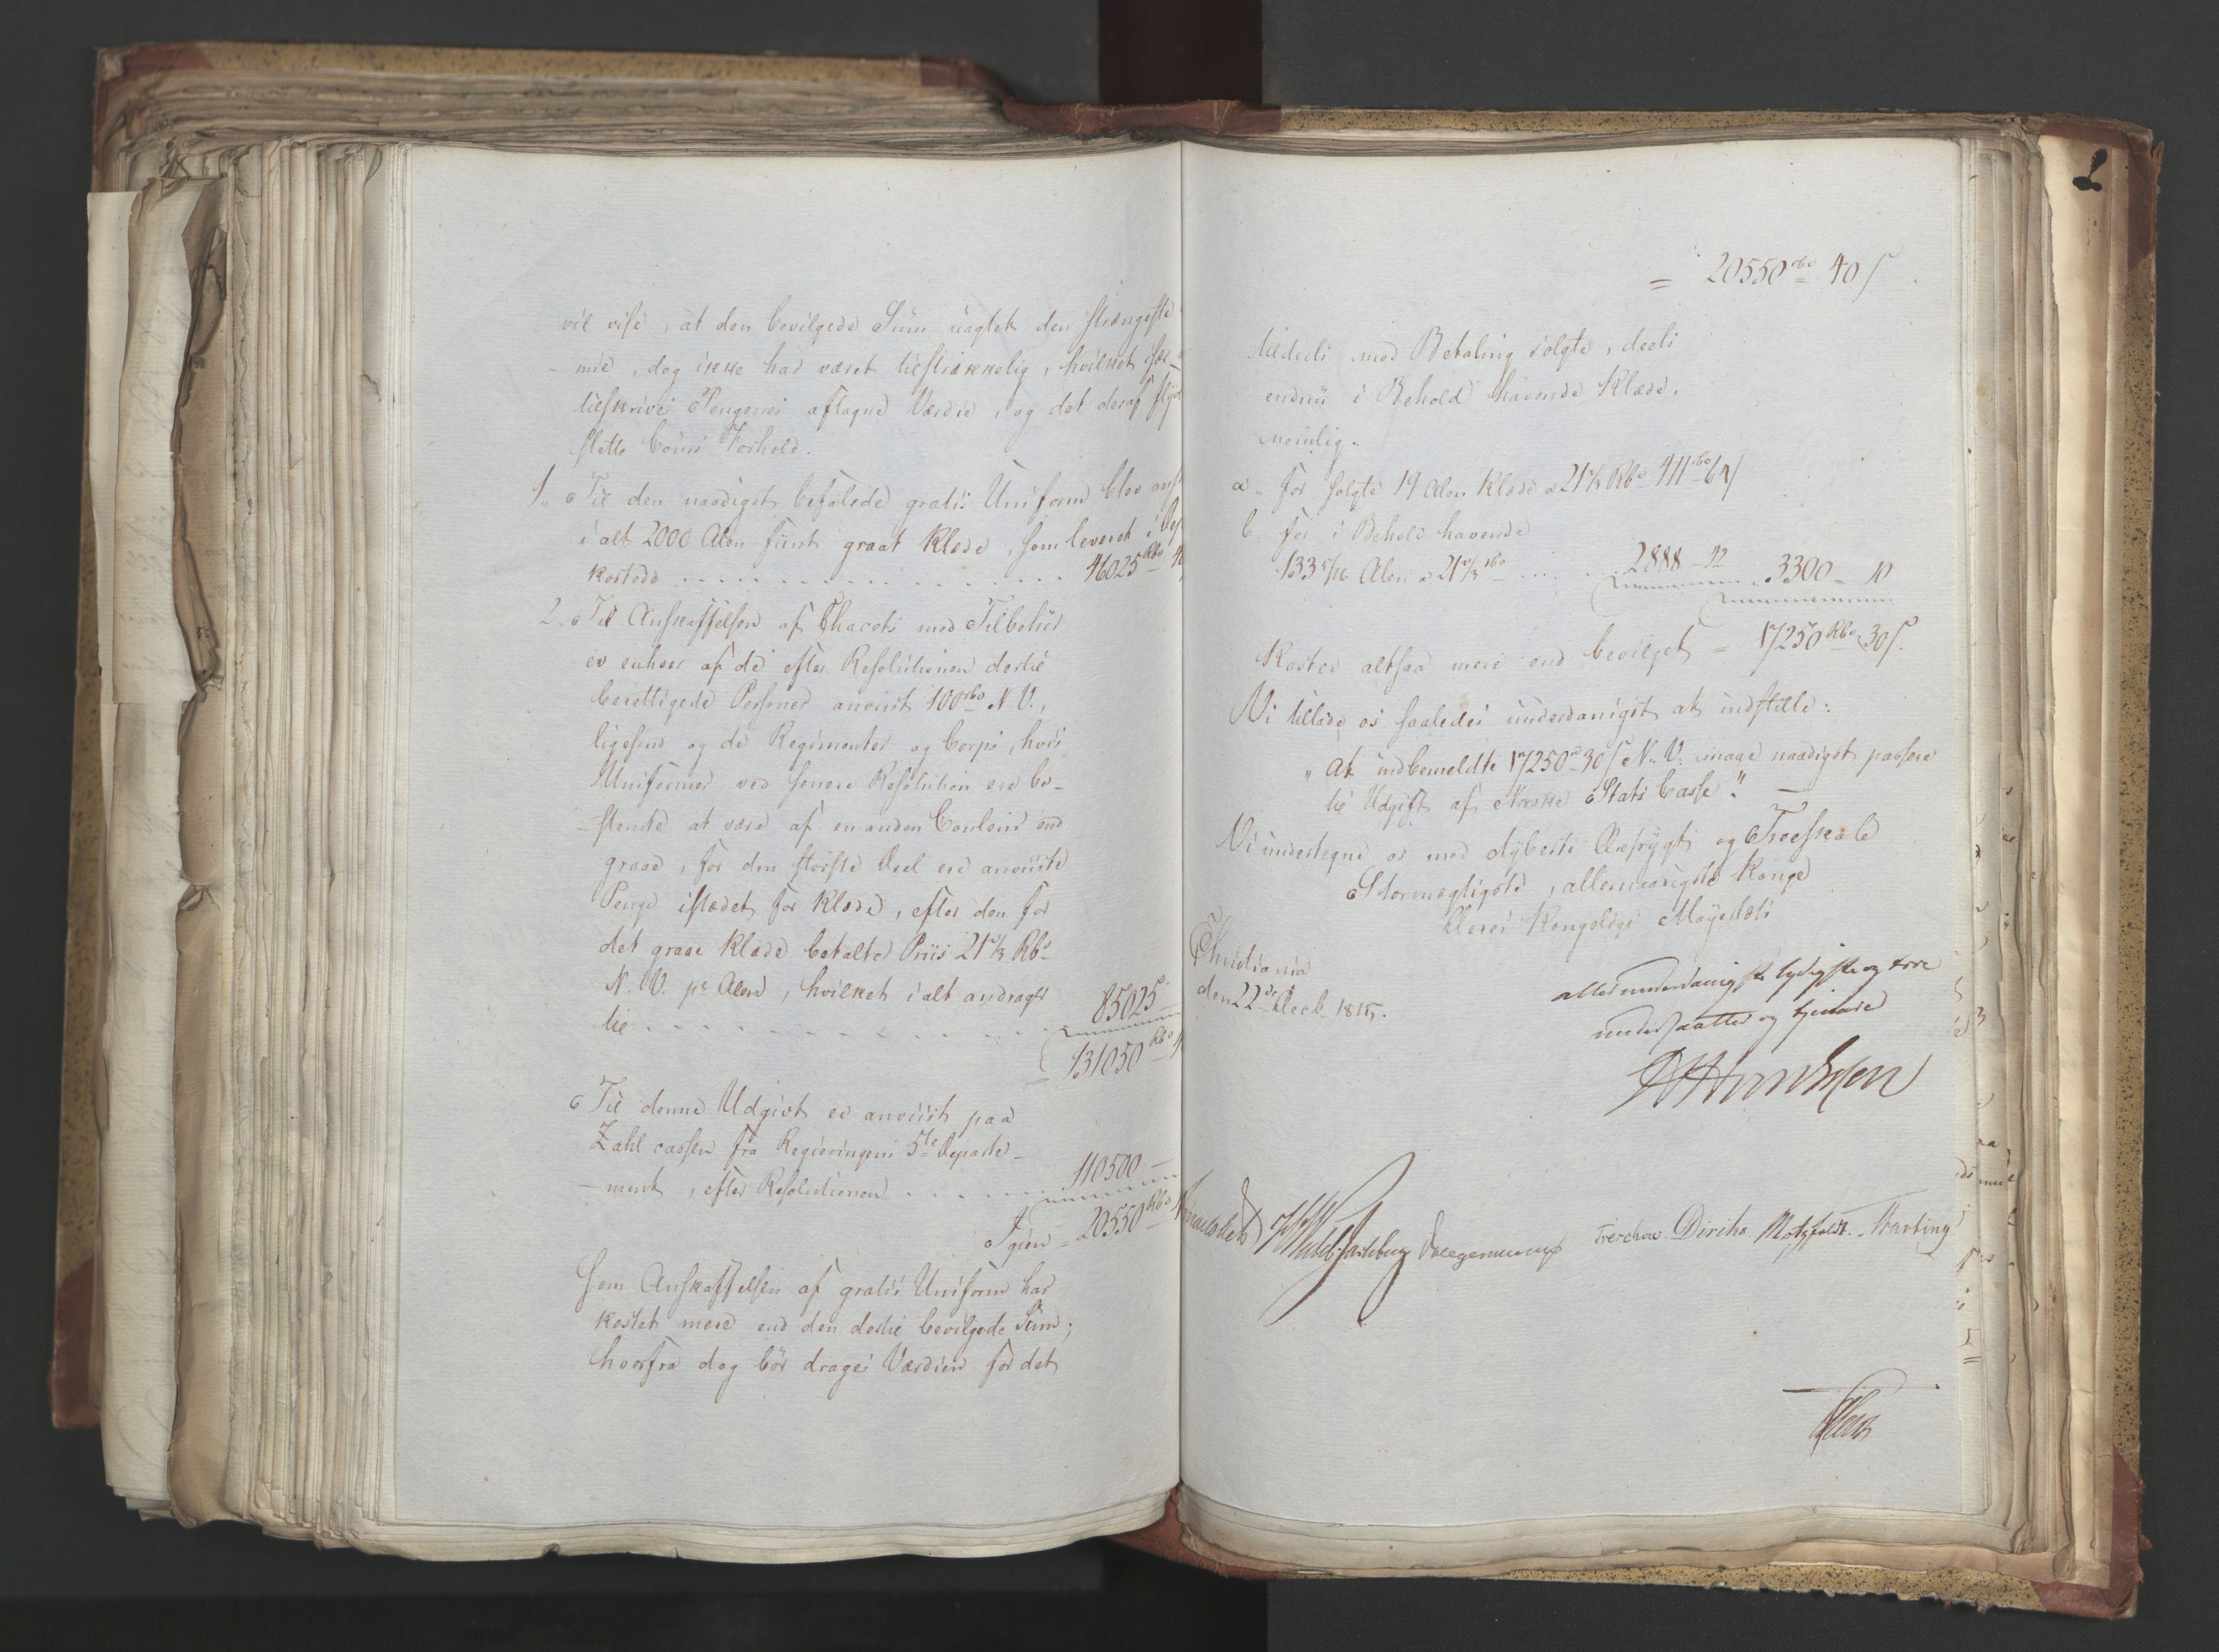 vil vise, at den bevilgede Sum uagtet den strængeste
- mie, dog ikke har været tilstrækkelig, hvilket især
tilskrives Pengenes aftagne Værdie, og det deraf flyd
slette Cours Forhold.
1. Til den naadigst befalede gratis Uniform blev
i alt 2000 Alen fiint graat Klæde, som leveret i
kostede . . . . . . . . . . . 46025 Rbd 40
2. Til Anskaffelsen af Chacots med Tilbehör
er enhver af de efter Resolutionen dertil
berettigede Personer anviist 100 rbd N. V.,
ligesom og de Regimenter og Corps, hvis
Uniformer ved senere Resolution ere be-
- stemte at være af en anden Couleur end
graae, for den störste Deel ere anviiste
Penge istædet for Klæde, efter den for
det graae Klæde betalte Priis 21 2/3 Rbd
N. V. pr Alen, hvilket i alt andrager
til . . . . . . . . . . . 85025 -
= 131050 Rbd
Til denne Udgivt er anviist paa
Zahlcassen fra Regieringens 5te Departe-
- ment, efter Resolutionen . . . . . 110500 -
Igien = 20550 Rbd
som Anskaffelsen af gratis Uniform har
kostet mere end den dertil bevilgede Sum;
hvorfra dog bör drages Værdien for det
= 20550 rbd 40 s
tildeels med Betaling solgte, deels
endnu i Behold havende Klæde,
nemlig.
a. for solgte 19 Alen Klæde a 21 2/3 Rbd 411 rbd 64 s
b. for i Behold havende
133 5/16 Alen a 21 2/3 rbd . . . . 2888 - 42 3300 = 10
Koster altsaa mere end bevilget = 17250 Rbd 30 s.
Vi tillade os saaledes underdanigst at indstille:
" At indbemeldte 17250 rbd 30 s N. V. maae naadigst passere
til Udgift af Norske Stats Casse". —
Vi undertegne os med dybeste Ærefrygt og Troeskab
Stormægtigste, allernaadigste Konge
Deres Kongelige Mayestæts
Christiania
den 22de Decb 1815.
allerunderdanigste lydigste og troe
undersaatter og tjenere
Treschow. Diriks Motzfeldt. Krefting